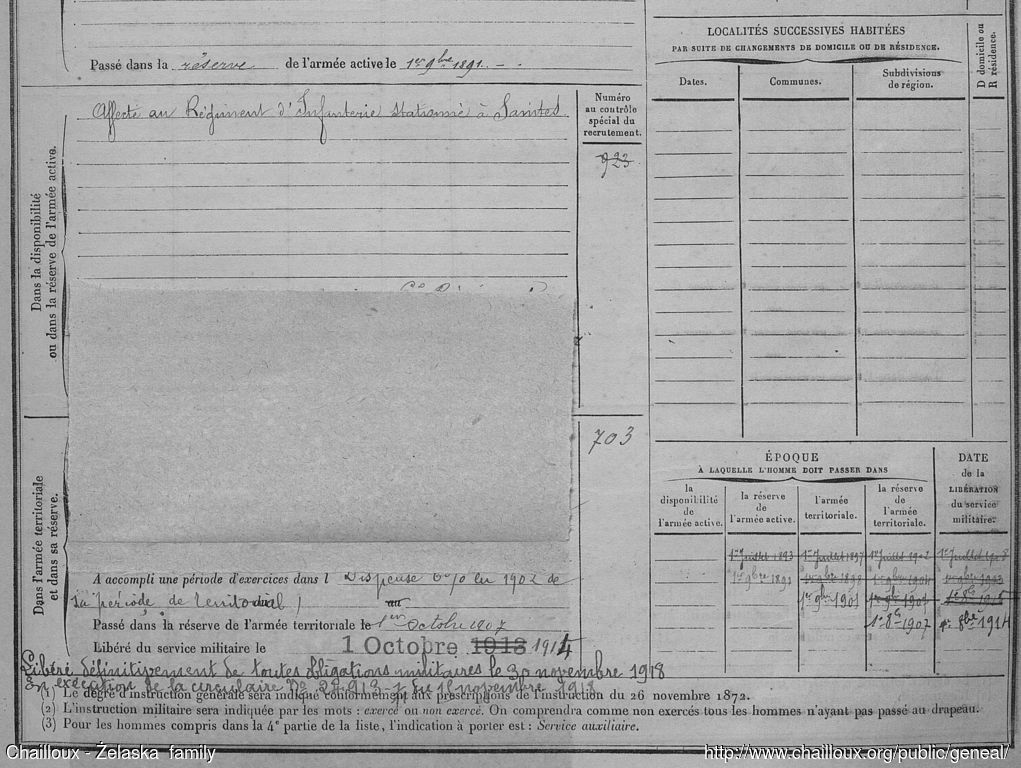 Passé dans la réserve de l'armée active le 1er 9bre 1891.
Dans la disponibilité
ou dans la réserve de l'armée active.
Affecté au Régiment d'Infanterie stationné à Saintes.
Numéro
au contrôle
spécial du
recrutement.
923
Dans l'armée territoriale
et dans sa réserve.
703
A accompli une période d'exercices dans l Dispensé en 1902 de
sa période de territorial
Passé dans la réserve de l'armée territoriale le 1er Octobre 1907
Libéré du service militaire le 1 Octobre 1913 1914
Libéré définitivement de toutes obligations militaires le 30 novembre 1918
En exécution de la circulaire No du novembre 1918
LOCALITÉS SUCCESSIVES HABITÉES
PAR SUITE DE CHANGEMENTS DE DOMICILE OU DE RÉSIDENCE.
Dates.
Communes.
Subdivisions
de région.
D domicile ou
R résidence.
ÉPOQUE
À LAQUELLE L'HOMME DOIT PASSER DANS
la
disponibilité
de
l'armée active.
la réserve
de
l'armée active.
l'armée
territoriale.
la réserve
de
l'armée
territoriale.
DATE
de la
LIBÉRATION
du service
militaire.
1er Juillet 1893 1er Juillet 1897 1er Juillet 1902 1er Juillet 1908
1er 9bre 1891
1er 9bre 1901 1er 9bre 1907
1er 8bre 1907 1er 8bre 1914
(1) Le degré d'instruction générale sera indiqué conformément aux prescriptions de l'instruction du 26 novembre 1872.
(2) L'instruction militaire sera indiquée par les mots : exercé ou non exercé. On comprendra comme non exercés tous les hommes n'ayant pas passé au drapeau.
(3) Pour les hommes compris dans la 4e partie de la liste, l'indication à porter est : Service auxiliaire.
Chailloux - Żelaska family
http://www.chailloux.org/public/geneal/